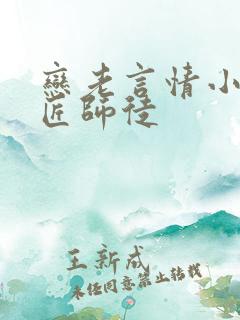 戀老言情小
匠師徒
王新成
未经同意禁止转载